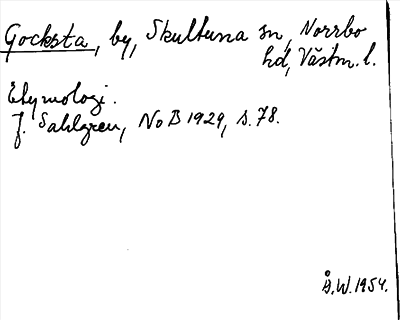 Gocksta, by, Skultuna sn, Norrbo
hd, Västm. l.
Etymologi.
J. Sahlgren, NoB 1929, s. 78.
Å.W. 1954.